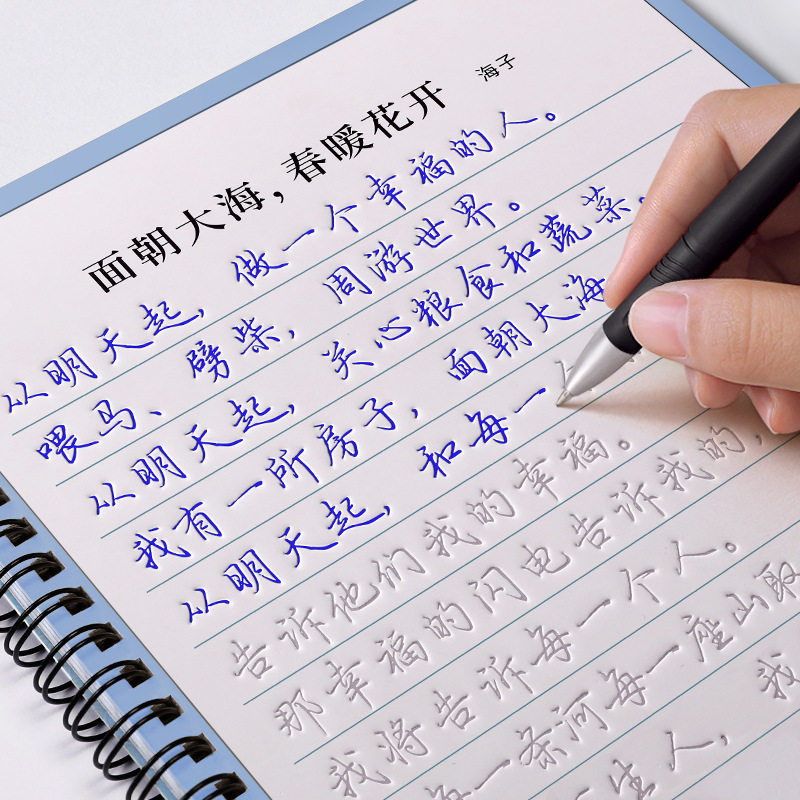 面朝大海,春暖花开 海子
从明天起,做一个幸福的人。
喂马、劈柴,周游世界。
从明天起,关心粮食和蔬菜。
我有一所房子,面朝大海
从明天起,和每一个
告诉他们我的幸福。
那幸福的闪电告诉我的,
我将告诉每一个人。
每一条河每一座山取
生人,我